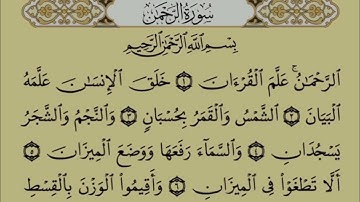 سُورَةُ الرَّحْمَٰن
بِسْمِ اللَّهِ الرَّحْمَٰنِ الرَّحِيمِ
الرَّحْمَٰنُ ۝١ عَلَّمَ الْقُرْءَانَ ۝٢ خَلَقَ الْإِنسَانَ عَلَّمَهُ
الْبَيَانَ ۝٣ الشَّمْسُ وَالْقَمَرُ بِحُسْبَانٍ ۝٤ وَالنَّجْمُ وَالشَّجَرُ
يَسْجُدَانِ ۝٥ وَالسَّمَاءَ رَفَعَهَا وَوَضَعَ الْمِيزَانَ ۝٥
أَلَّا تَطْغَوْا فِي الْمِيزَانِ ۝٦ وَأَقِيمُوا الْوَزْنَ بِالْقِسْطِ